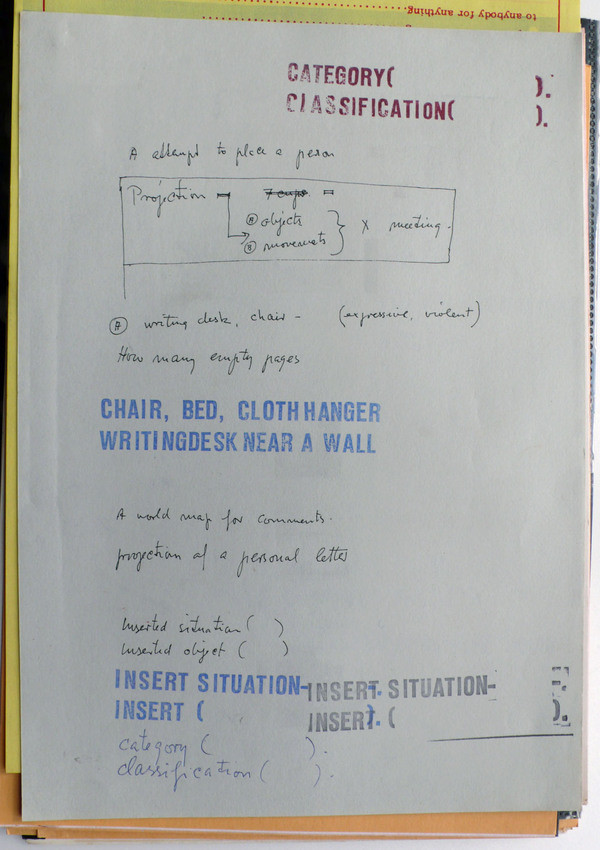 to anybody for anything
CATEGORY( ).
CLASSIFICATION( ).
A attempt to place a person
Projection
Ⓐ objects
Ⓑ movements } X meeting.
Ⓐ writing desk, chair – (expressive, violent)
How many empty pages
CHAIR, BED, CLOTHHANGER
WRITINGDESK NEAR A WALL
A world map for comments.
projection of a personal letter
Inserted situation ( )
Inserted object ( )
INSERT SITUATION- INSERT SITUATION-
INSERT ( ). INSERT ( ).
category ( ).
classification ( ).